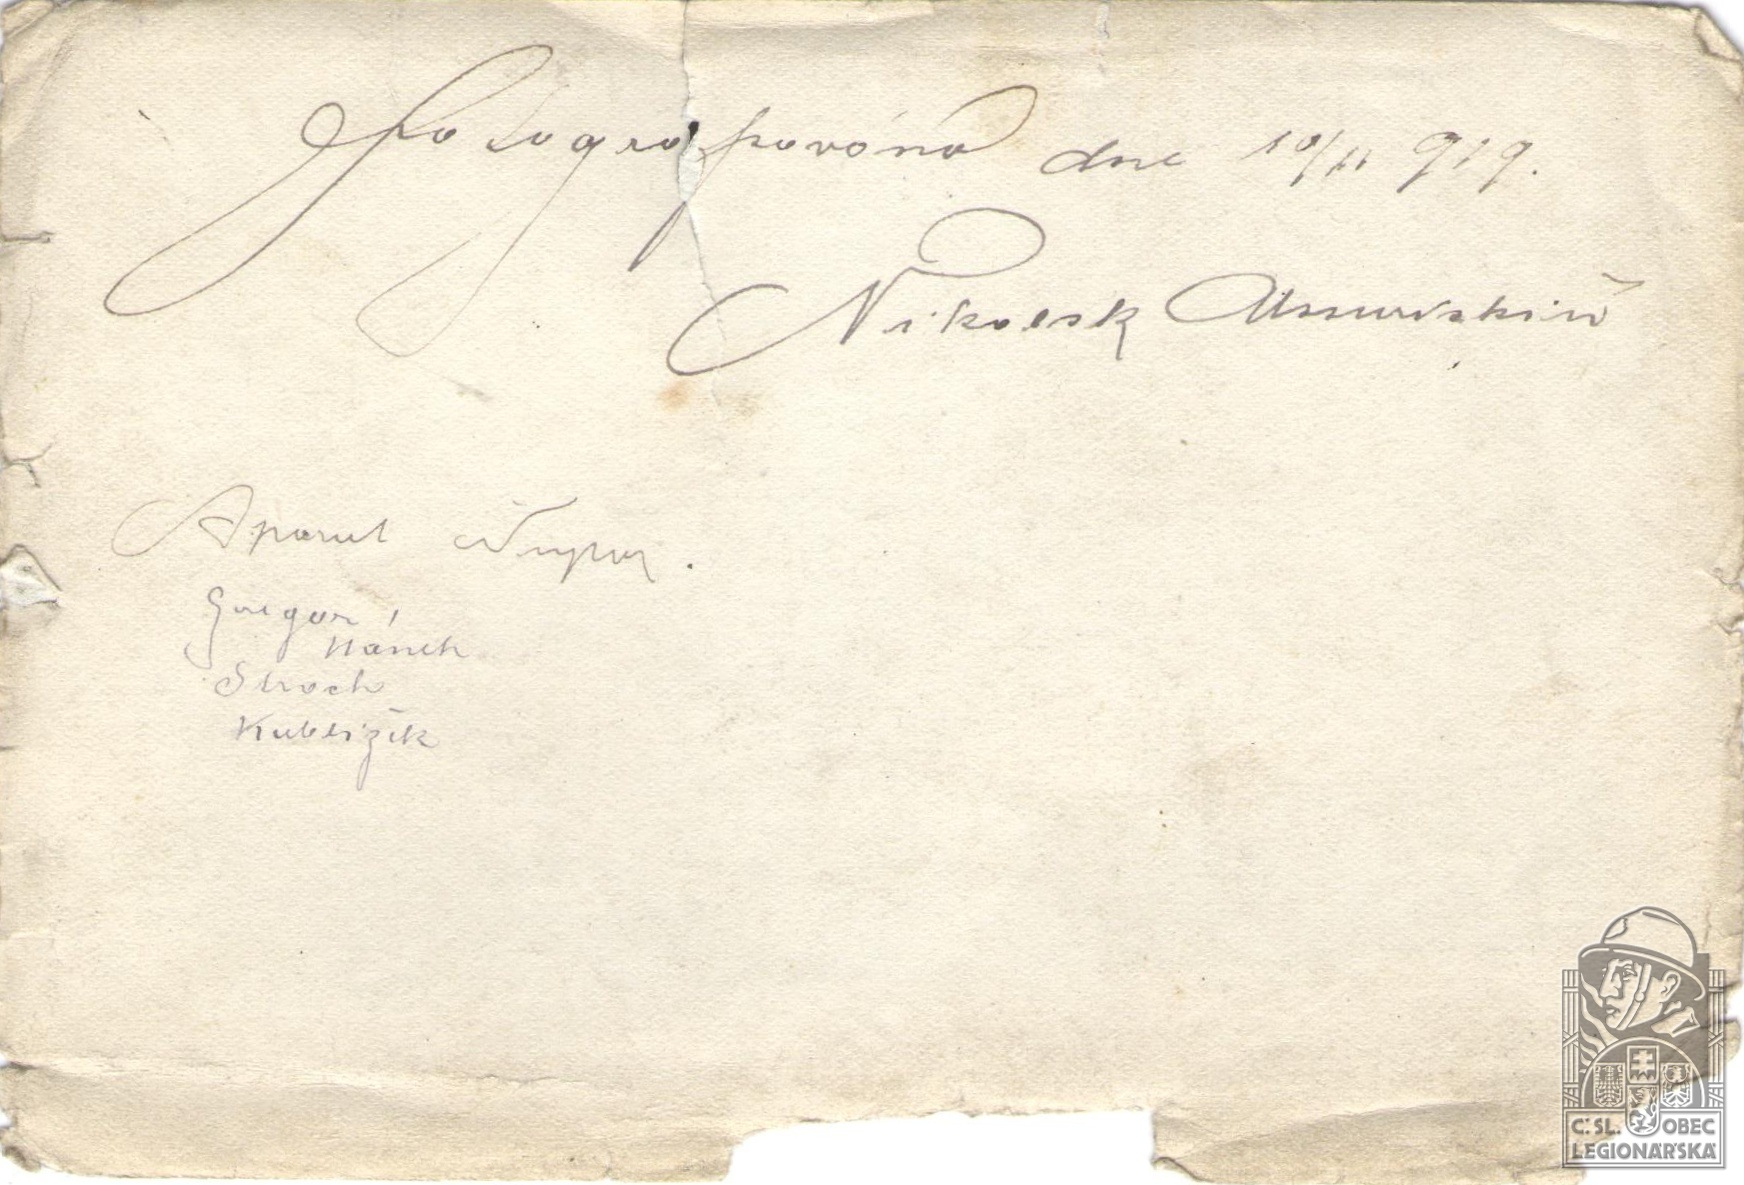 Fotografována dne 10/II 919.
Nikolsk Ussuriskiů
Aparat
Gregor
Hánek
Stroch
Kubližik
Č. SL. OBEC
LEGIONÁŘSKÁ